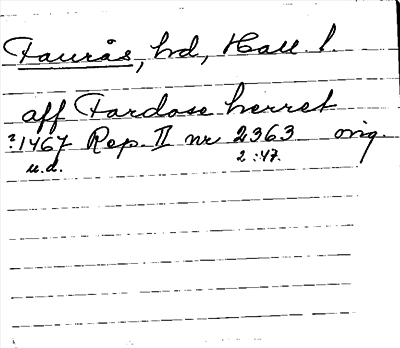 Faurås, hd, Hall. l.
aff Fardose herret
?1467 Rep. II nr 2363 orig.
u.d. 2:47.